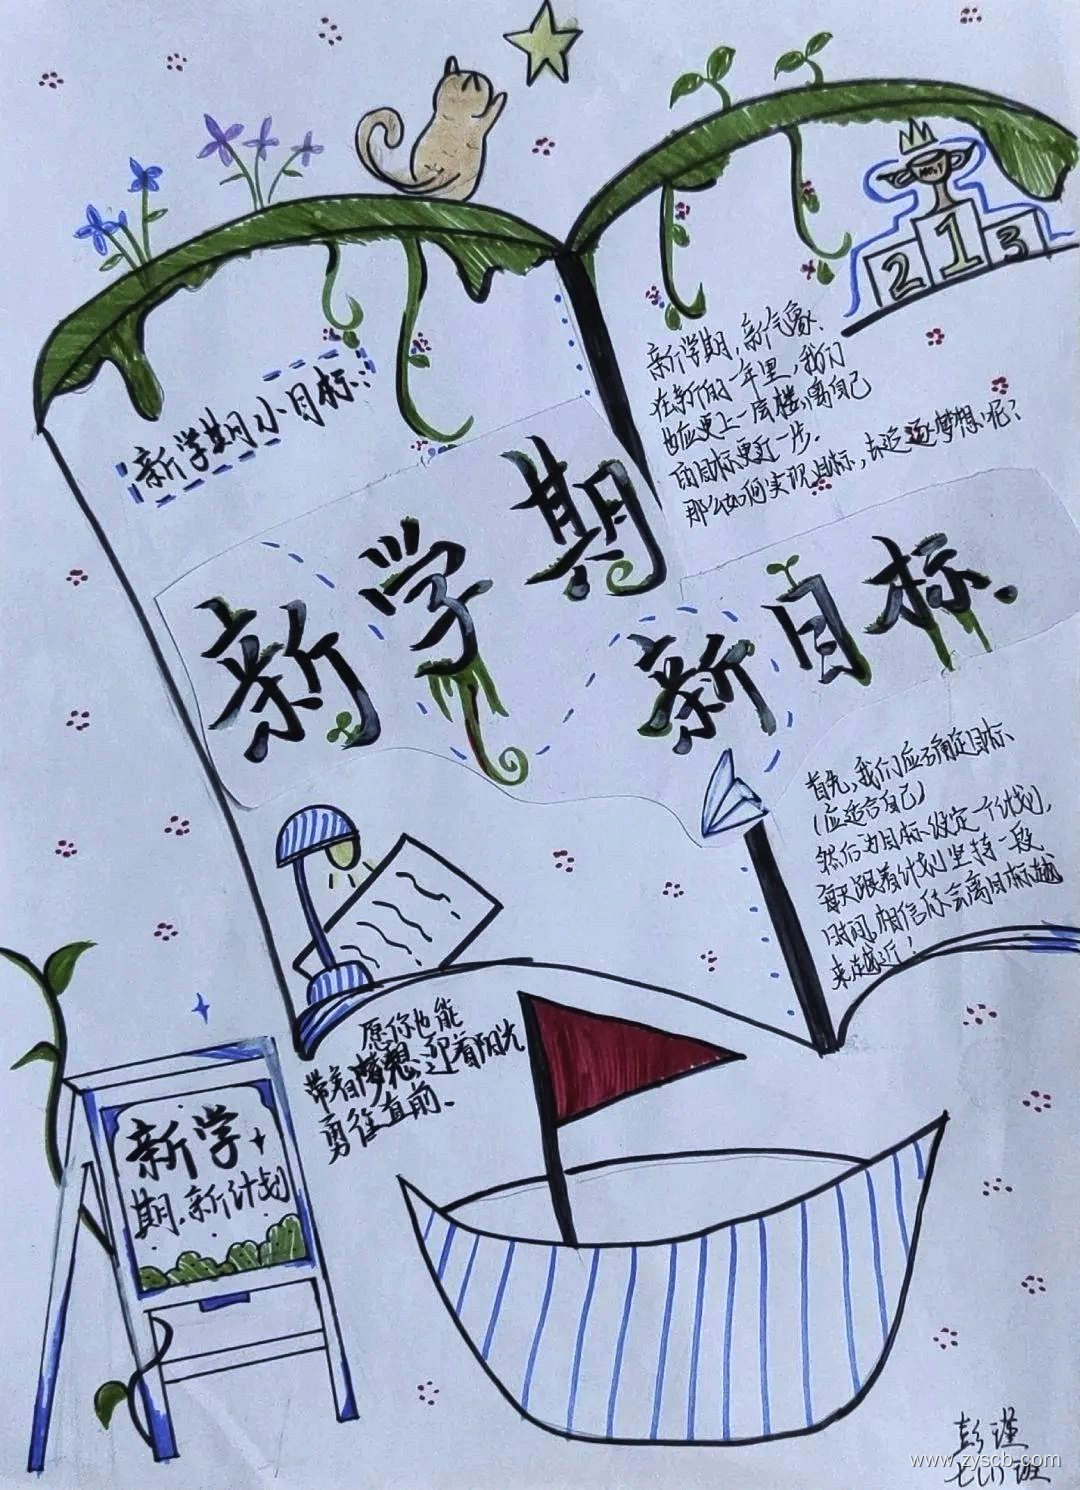 新学期小目标:
新学期
新目标
NO.1
2 1 3
新学期,新气象、
在新的一年里,我们
也应更上一层楼,离自己
的目标更近一步.
那么如何实现目标,去追逐梦想呢?
首先,我们应确定目标
(应适合自己)
然后为目标设定一个计划,
每天跟着计划坚持一段
时间,相信你会离目标越
来越近!
愿你也能
带着梦想迎着阳光
勇往直前.
新学
期.新计划
彭瑾
七(1)班
www.zyscb.com